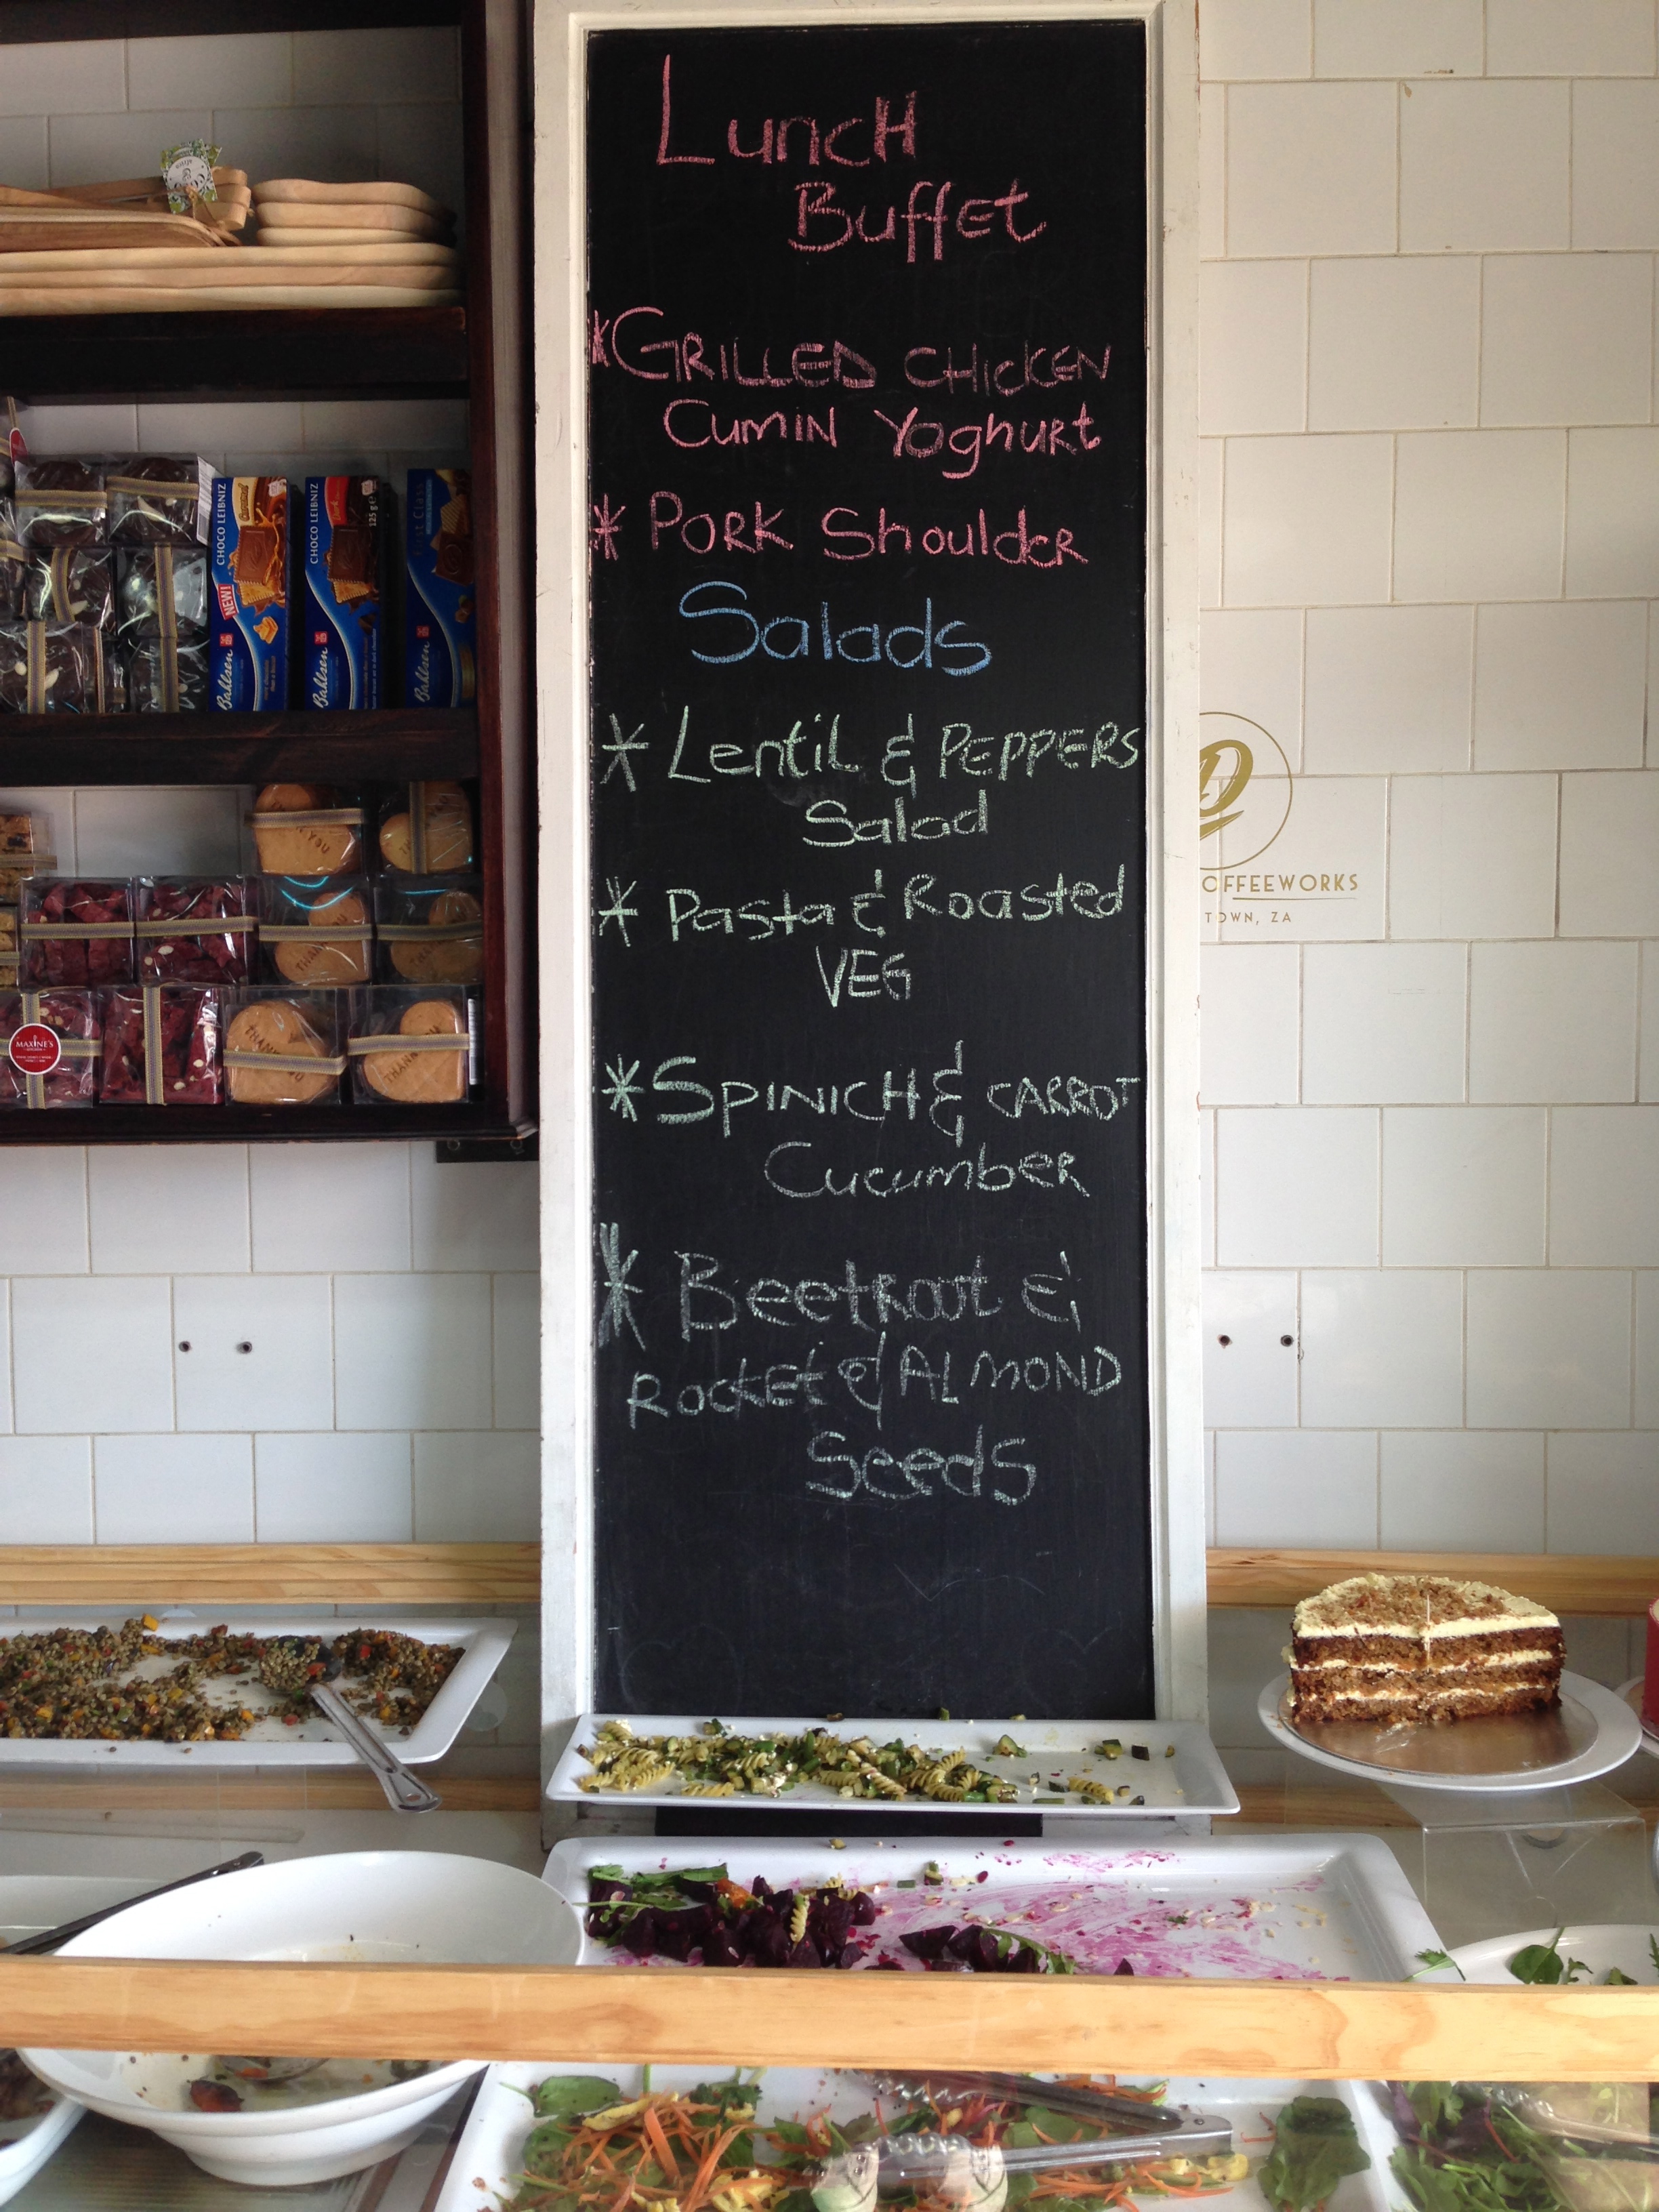 LuncH
BuffEt
*GRILLED CHICKEN
CumiN YoghuRt
* PORK ShouldER
Salads
* LentiL & PEPPERS
Salad
* Pasta & Roasted
VEG
*SPINICH & CARROT
CucumbeR
* BeetRoot &
ROCKET & ALMOND
SeedS
CHOCO LEIBNIZ
NEW!
Bahlsen
CHOCO LEIBNIZ
125 g e
Bahlsen
First Class
Bahlsen
YOU
THANK
MAXINE'S
THANK YOU
THANK
D
OFFEEWORKS
TOWN, ZA